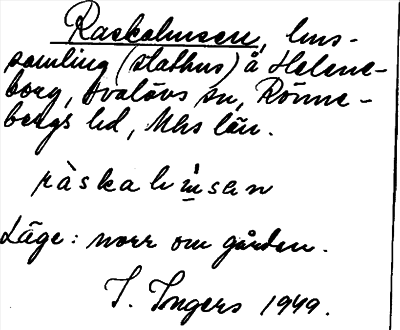 Raskahusen, hus-
samling (stathus) å Helene-
borg, Svalövs sn, Rönne-
bergs hd, Mhs län.
ràskahʉ̀sen
Läge: norr om gården.
I. Ingers 1949.